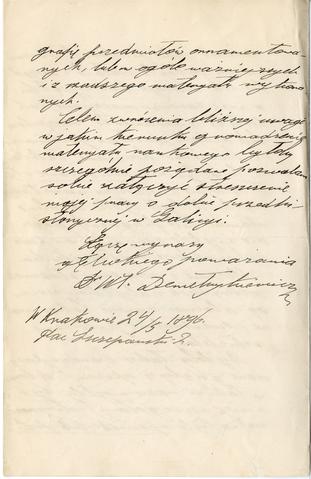 grafię przedmiotów ornamentowa-
nych, lub w ogóle ważniejszych
i z rzadszego materyału wykona-
nych.
Celem zwrócenia bliższej uwagi
w jakim kierunku gromadzenie
materyału naukowego byłoby
szczególnie pożądane pozwalam
sobie załączyć streszczenie
mojej pracy o dobie przedhi-
storycznej w Galicyi.
Łączę wyrazy
głębokiego poważania
Dr Wł. Demetrykiewicz
W Krakowie 24/5 1896.
Plac Szczepański 2.